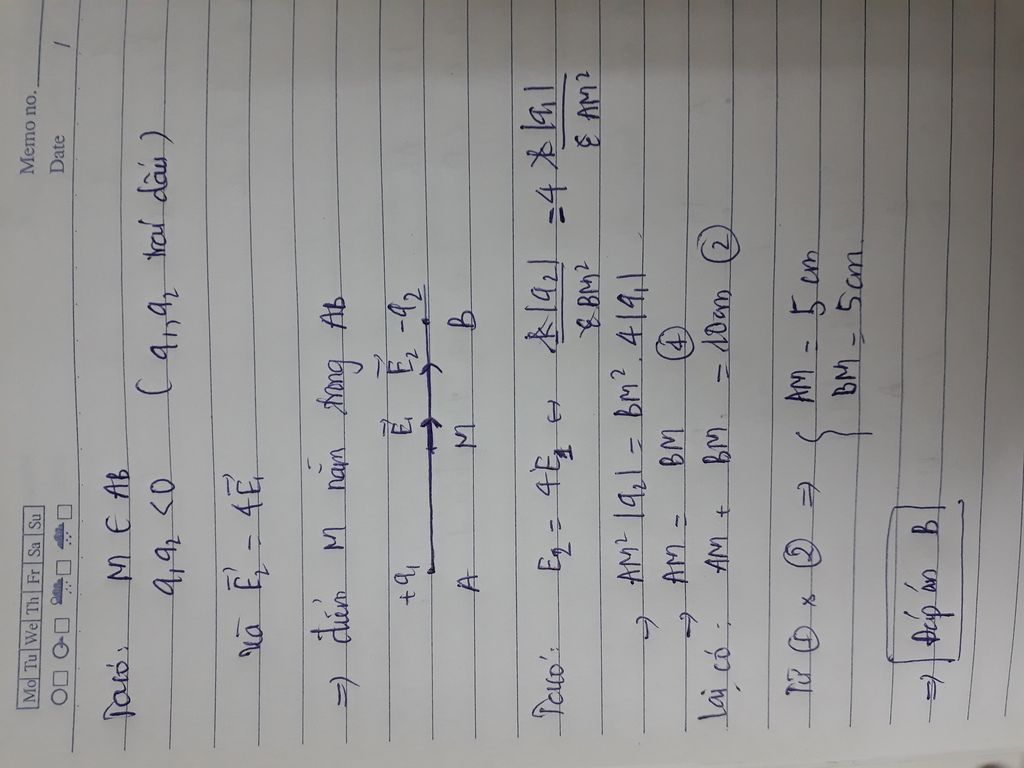 Memo no.
Mo Tu We Th Fr Sa Su
Date /
Ta có: M ∈ AB
q₁q₂ <0 (q₁,q₂ trái dấu)
Và E⃗₂ = 4E⃗₁
=> điểm M nằm trong AB
+q₁ E⃗₁ E⃗₂ -q₂
A M B
Ta có: E₂ = 4E₁ ⇔ k|q₂| / εBM² = 4 k|q₁| / εAM²
→ AM²|q₂| = BM².4|q₁|
→ AM = BM ①
Lại có: AM + BM = 10cm ②
Từ ① & ② => { AM = 5 cm
BM = 5cm
=> Đáp án B